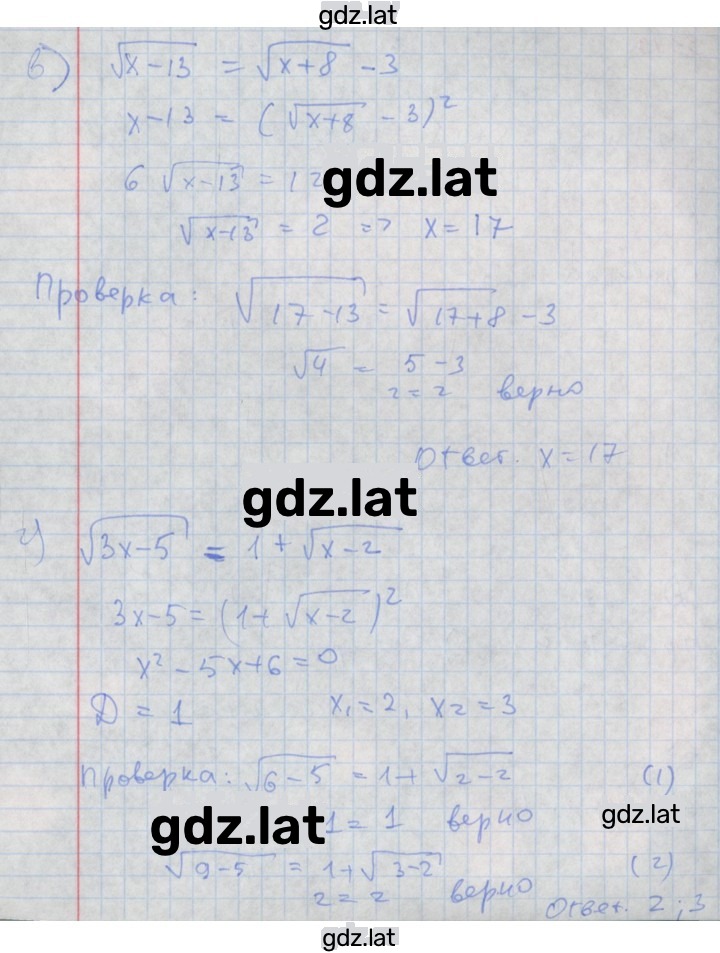 gdz.lat
в) √x-13 = √x+8 - 3
x-13 = (√x+8 - 3)²
6 √x-13 = 12
gdz.lat
√x-13 = 2 => x = 17
Проверка: √17-13 = √17+8 - 3
√4 = 5-3
2 = 2 верно
Ответ. x = 17
gdz.lat
г) √3x-5 = 1 + √x-2
3x-5 = (1+ √x-2)²
x² - 5x+6=0
D = 1 x₁=2, x₂=3
Проверка: √6-5 = 1+ √2-2 (1)
gdz.lat
1 = 1 верно
gdz.lat
√9-5 = 1+√3-2 (2)
2 = 2 верно
Ответ. 2;3
gdz.lat